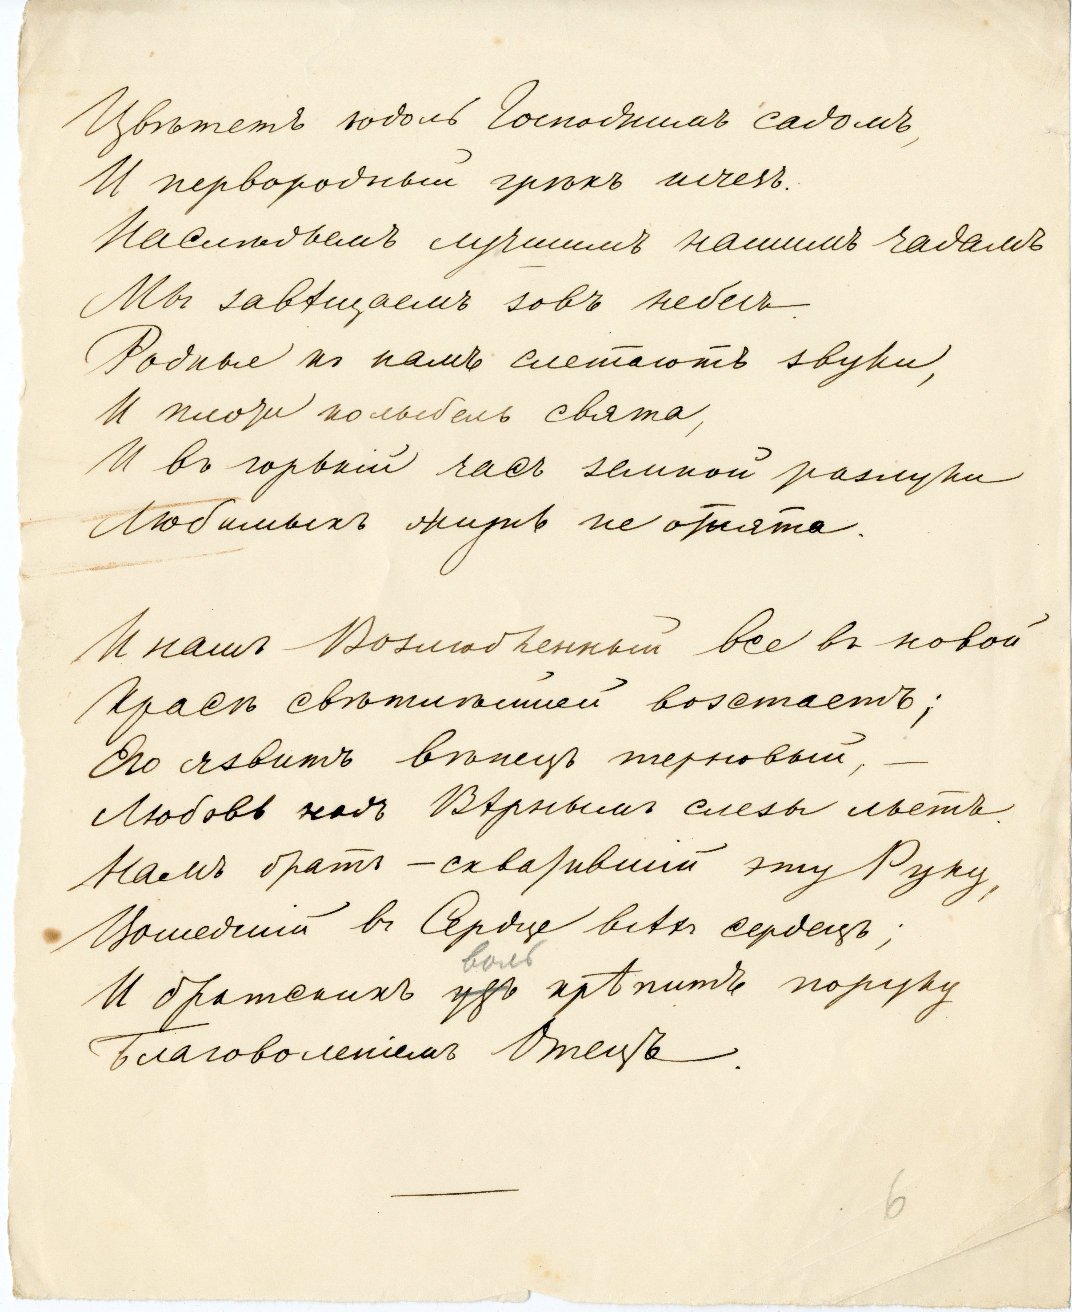 Цвѣтетъ юдоль Господнимъ садомъ,
И первородный грѣхъ исчезъ.
Наслѣдьемъ лучшимъ нашимъ чадамъ
Мы завѣщаемъ зовъ небесъ.
Родные къ намъ слетаютъ звуки,
И плоти колыбель свята,
И въ горькій часъ земной разлуки
Любимыхъ жизнь не отнята.
И нашъ Возлюбленный все въ новой
Красѣ свѣтлѣйшей возстаетъ;
Его язвитъ вѣнецъ терновый, —
Любовь надъ Вѣрнымъ слезы льетъ.
Намъ братъ — сковавшій эту Руку,
Вошедшій въ Сердце всѣхъ сердецъ;
воль
И братскихъ узъ крѣпитъ поруку
Благоволеніемъ Отецъ.
6